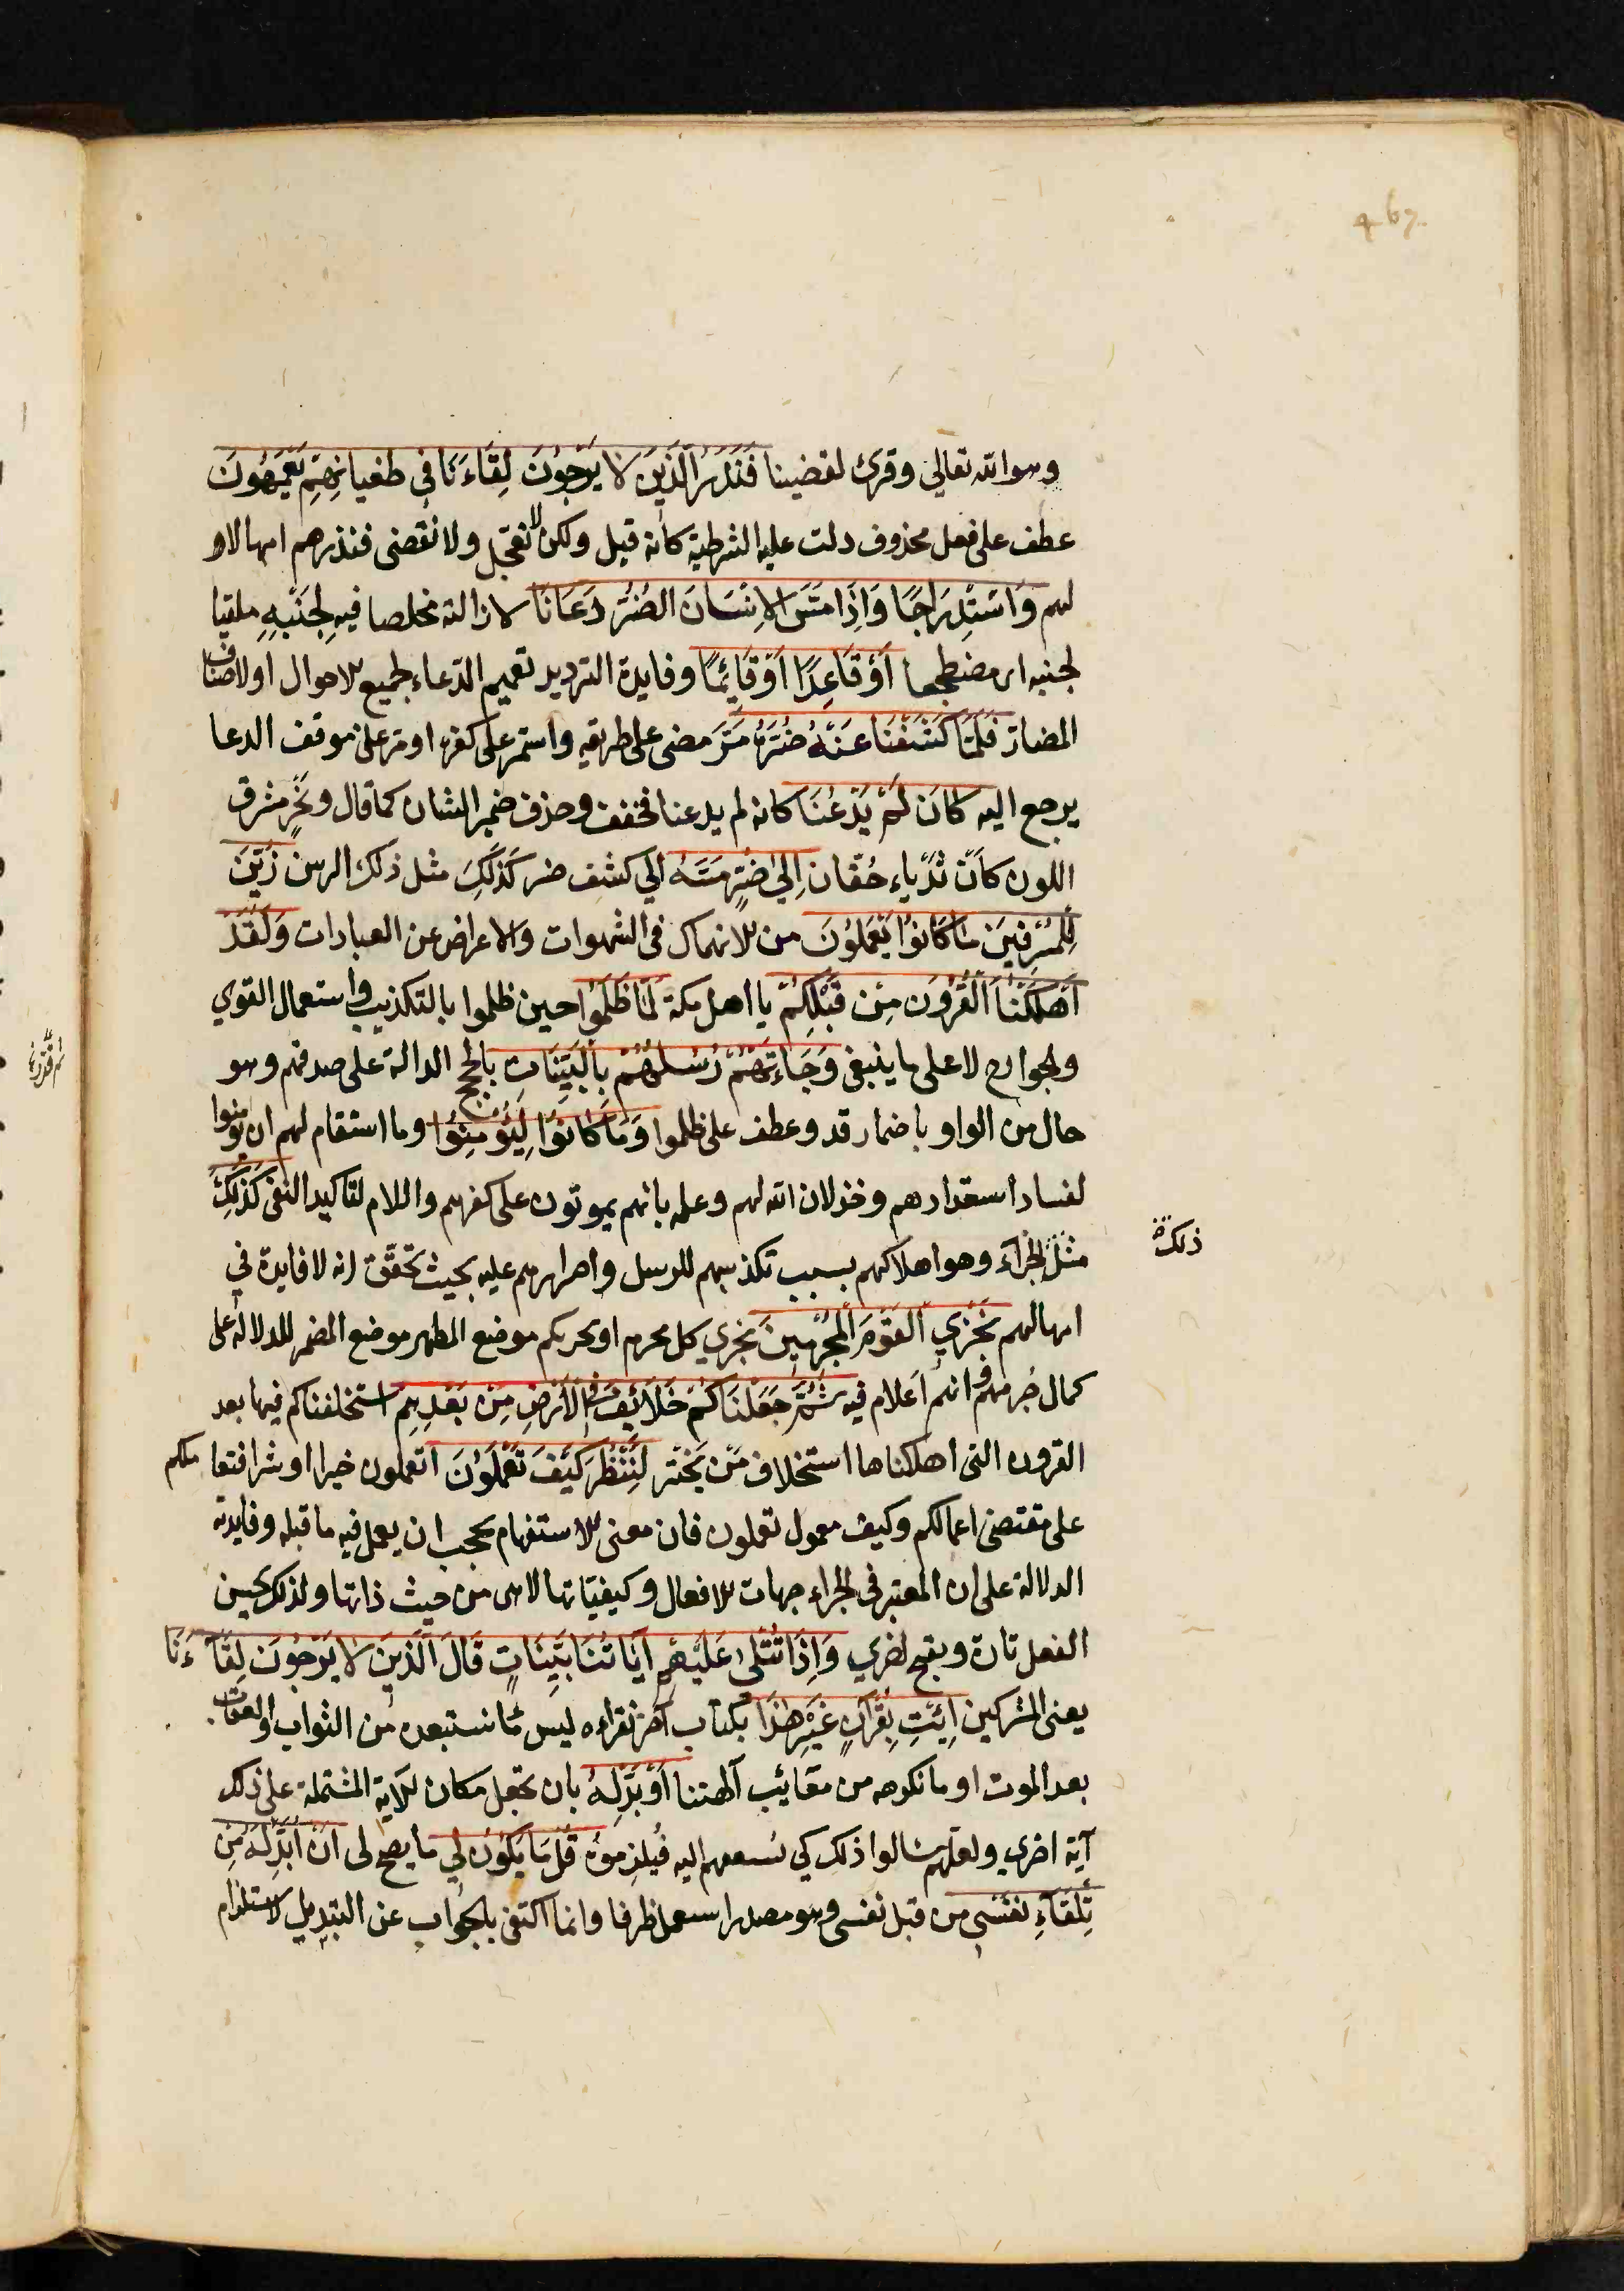 467
وهو الله تعالى وقرئ لقضينا فَنَذَرُ الَّذِينَ لَا يَرْجُونَ لِقَاءَنَا فِى طغيانِهِمْ يَعْمَهُونَ
عطف على فعل محذوف دلت عليه الشرطية كأنه قيل ولكن لا نعجّل ولا نقضى فنذرهم امهالا
لهم وَاسْتِدْرَاجًا وَإِذَا مَسَّ الْإِنْسَانَ الضُّرُّ دَعَانَا لازالته مخلصا فيه لِجَنْبِهِ ملقيا
لجنبه اى مضطجعا أَوْ قَاعِدًا أَوْ قَائِمًا وفايدة الترديد تعميم الدّعاء لجميع الاحوال او لاصناف
المضارّ فَلَمَّا كَشَفْنَا عَنْهُ ضُرَّهُ مَرَّ مضى على طريقه واستمر على كفره او مرّ على موقف الدعا
يرجع اليه كَانَ لَمْ يَدْعُنَا كانه لم يدعنا فخفف وحذف ضمير الشان كما قال ونحرٍ مشرق
اللون كأنّ ثَدْياءِ حُقّان إِلَى ضُرٍّ مَسَّهُ الى كشف ضر كَذَلِكَ مثل ذلك الزين زُيِّنَ
لِلْمُسْرِفِينَ مَا كَانُوا يَعْمَلُونَ من الانهماك فى الشهوات والاعراض عن العبادات وَلَقَدْ
أَهْلَكْنَا الْقُرُونَ مِنْ قَبْلِكُمْ يا اهل مكة لَمَّا ظَلَمُوا حين ظلموا بالتكذيب واستعمال القوي
والجوارح لا على ما ينبغى وَجَاءَتْهُمْ رُسُلُهُمْ بِالْبَيِّنَاتِ بالحجج الدالة على صدقهم وهو
حال من الواو باضمار قد وعطف على ظلموا وَمَا كَانُوا لِيُؤْمِنُوا وما استقام لهم ان يؤمنوا
لفساد استعدادهم وخذلان الله لهم وعلمه بانهم يموتون على كفرهم واللام لتاكيد النفى كَذَلِكَ
مثل الجزاء وهو اهلاكهم بسبب تكذيبهم للرسل واصرارهم عليه بحيث تحقّق انه لا فايدة في
ذلك
امهالهم نَجْزِي الْقَوْمَ الْمُجْرِمِينَ نجزي كل مجرم او نجزيكم موضع المظهر موضع المضمر للدلالة على
كمال جُرمهم وانهم اَعلام فيه ثُمَّ جَعَلْنَاكُمْ خَلَائِفَ فِي الْأَرْضِ مِنْ بَعْدِهِمْ استخلفناكم فيها بعد
القرون التى اهلكناها استخلاف مَن يَختبر لِنَنْظُرَ كَيْفَ تَعْمَلُونَ اتعملون خيرا او شرا فنعاملكم
على مقتضى اعمالكم وكيف معمول تعملون فان معنى الاستفهام يحجب ان يعمل فيه ما قبله وفايدته
الدلالة على ان المعتبر فى الجزاء جهات الافعال وكيفيّاتها لا هى من حيث ذاتها ولذلك يحسن
الفعل تارة ويقبح اخري وَإِذَا تُتْلَى عَلَيْهِمْ آيَاتُنَا بَيِّنَاتٍ قَالَ الَّذِينَ لَا يَرْجُونَ لِقَاءَنَا
يعنى المشركين اِئْتِ بِقُرْآنٍ غَيْرِ هَذَا بكتاب آخر نقراءه ليس مّا نستبعده من الثواب والعقاب
بعد الموت او ما نكرهه من معَائب آلهتنا أَوْ بَدِّلْهُ بان تجعل مكان الآية المشتملة على ذلك
آية اخري ولعلّهم سالوا ذلك كي يُسعفهم اليه فيُلزِموه قُلْ مَا يَكُونُ لِي ما يصح لى أَنْ أُبَدِّلَهُ مِنْ
تِلْقَاءِ نَفْسِي من قبل نفسى وهو مصدر استعمل ظرفا وانما اكتفى بالجواب عن التبديل لاستلزام